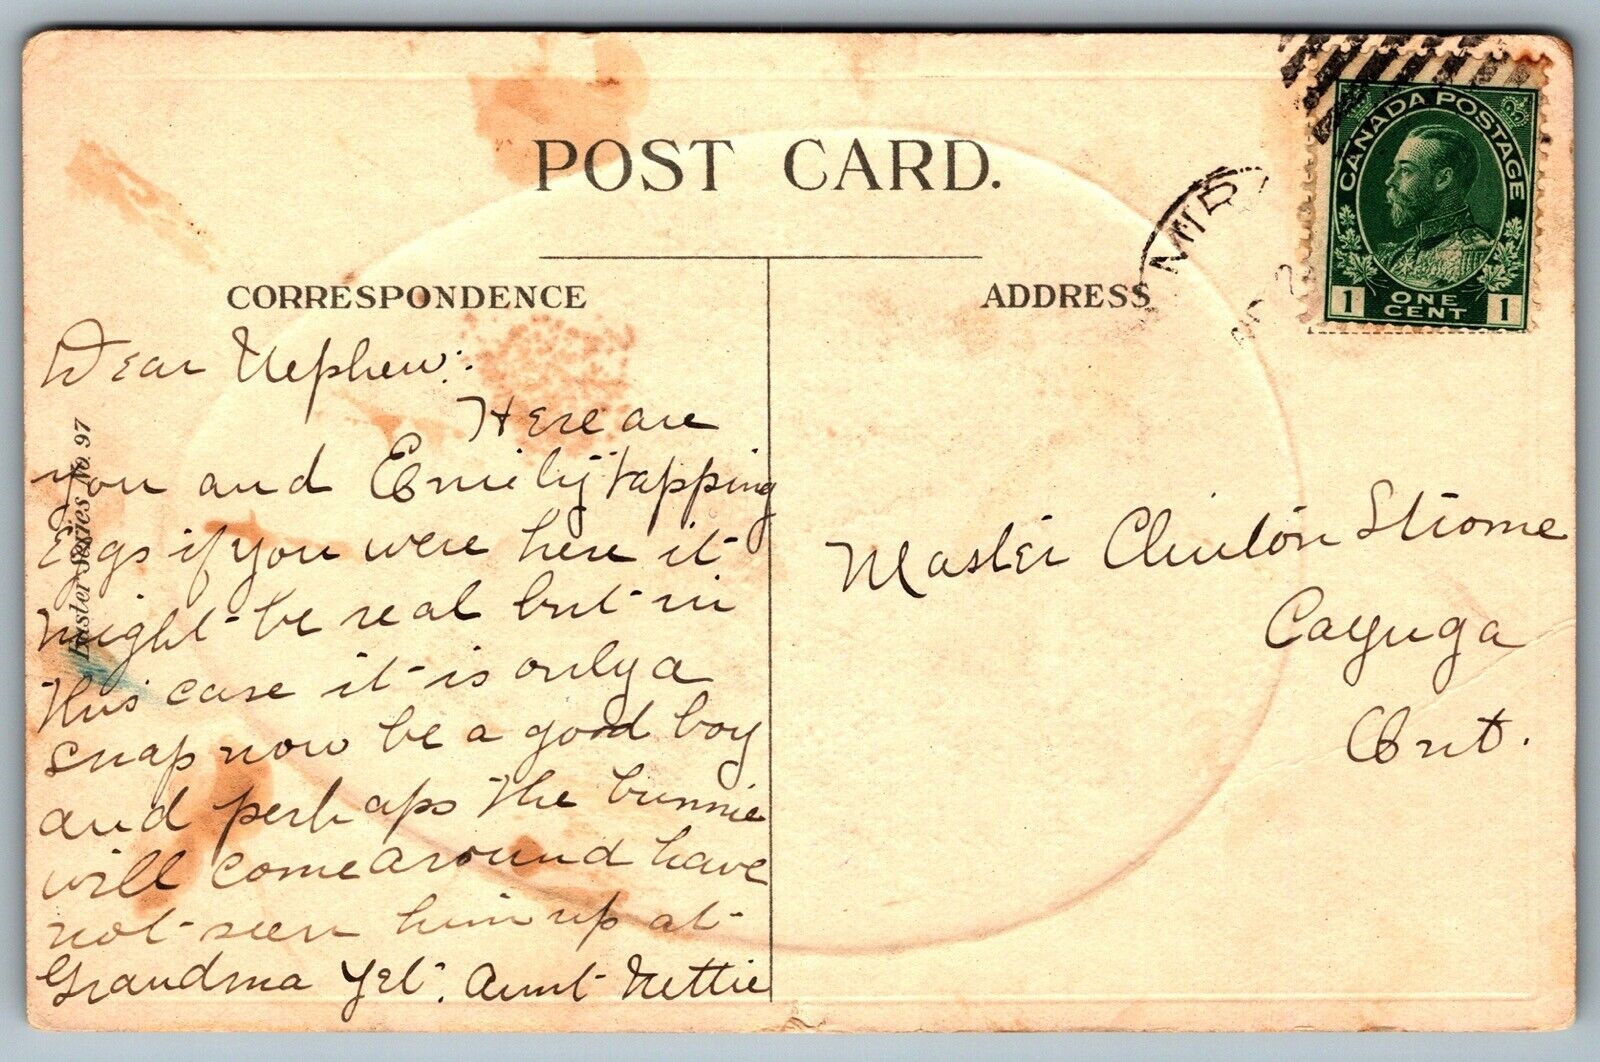 POST CARD.
CORRESPONDENCE
ADDRESS
CANADA POSTAGE
1 ONE CENT 1
MID
Easter Series No. 97
Dear Nephew:
Here are
you and Emily tapping
Eggs if you were here it
might be real but in
this case it is only a
snap now be a good boy
and perhaps the bunnie
will come around have
not seen him up at
Grandma yet. Aunt Nettie
Master Clinton Strome
Cayuga
Ont.